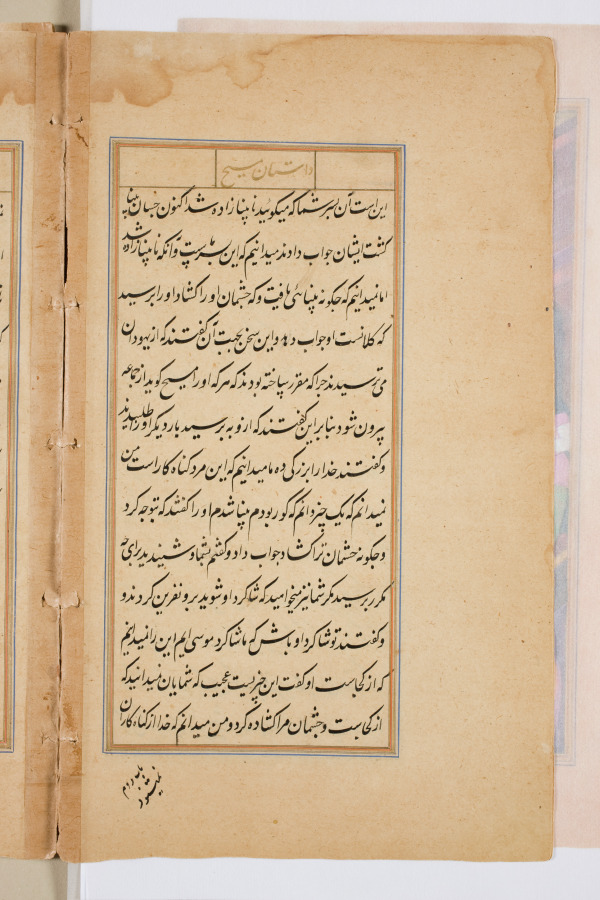 داستان مسیح
این است آن پسر شما که میگویید نابینا زاده شد اکنون چسان بینا
گشت ایشان جواب دادند میدانیم که این پسر ماست و آنکه نابینا زاده شد
اما نمیدانیم که چگونه بینائی یافت و که چشمان او را کشاد او را بپرسید
که کلانست او جواب دهد و این سخن بجهت آن گفتند که از یهودان
می ترسیدند چرا که مقرر ساخته بودند که هر که او را مسیح گوید از جماعه
بیرون شود بنابر این گفتند که ازو بپرسید بار دیگر او را طلبیدند
و گفتند خدا را بزرگی ده ما میدانیم که این مرد گناه کار است من
نمیدانم که یک چیز دانم که کور بودم بینا شدم او را گفتند که بتو چه کرد
و چگونه چشمان ترا کشاد جواب داد و گفتم بشما و شنیدید برای چه
مکرر پرسید مگر شما نیز میخواهید که شاگرد او شوید برو نفرین کردند و
و گفتند تو شاگرد او باش که ما شاگرد موسی ایم این را نمیدانیم
که از کجاست او گفت این چیزیست عجیب که شمایان نمیدانید که
از کجاست و چشمان مرا کشاده کرد و من میدانم که خدا از گناه کاران
نمیشنود